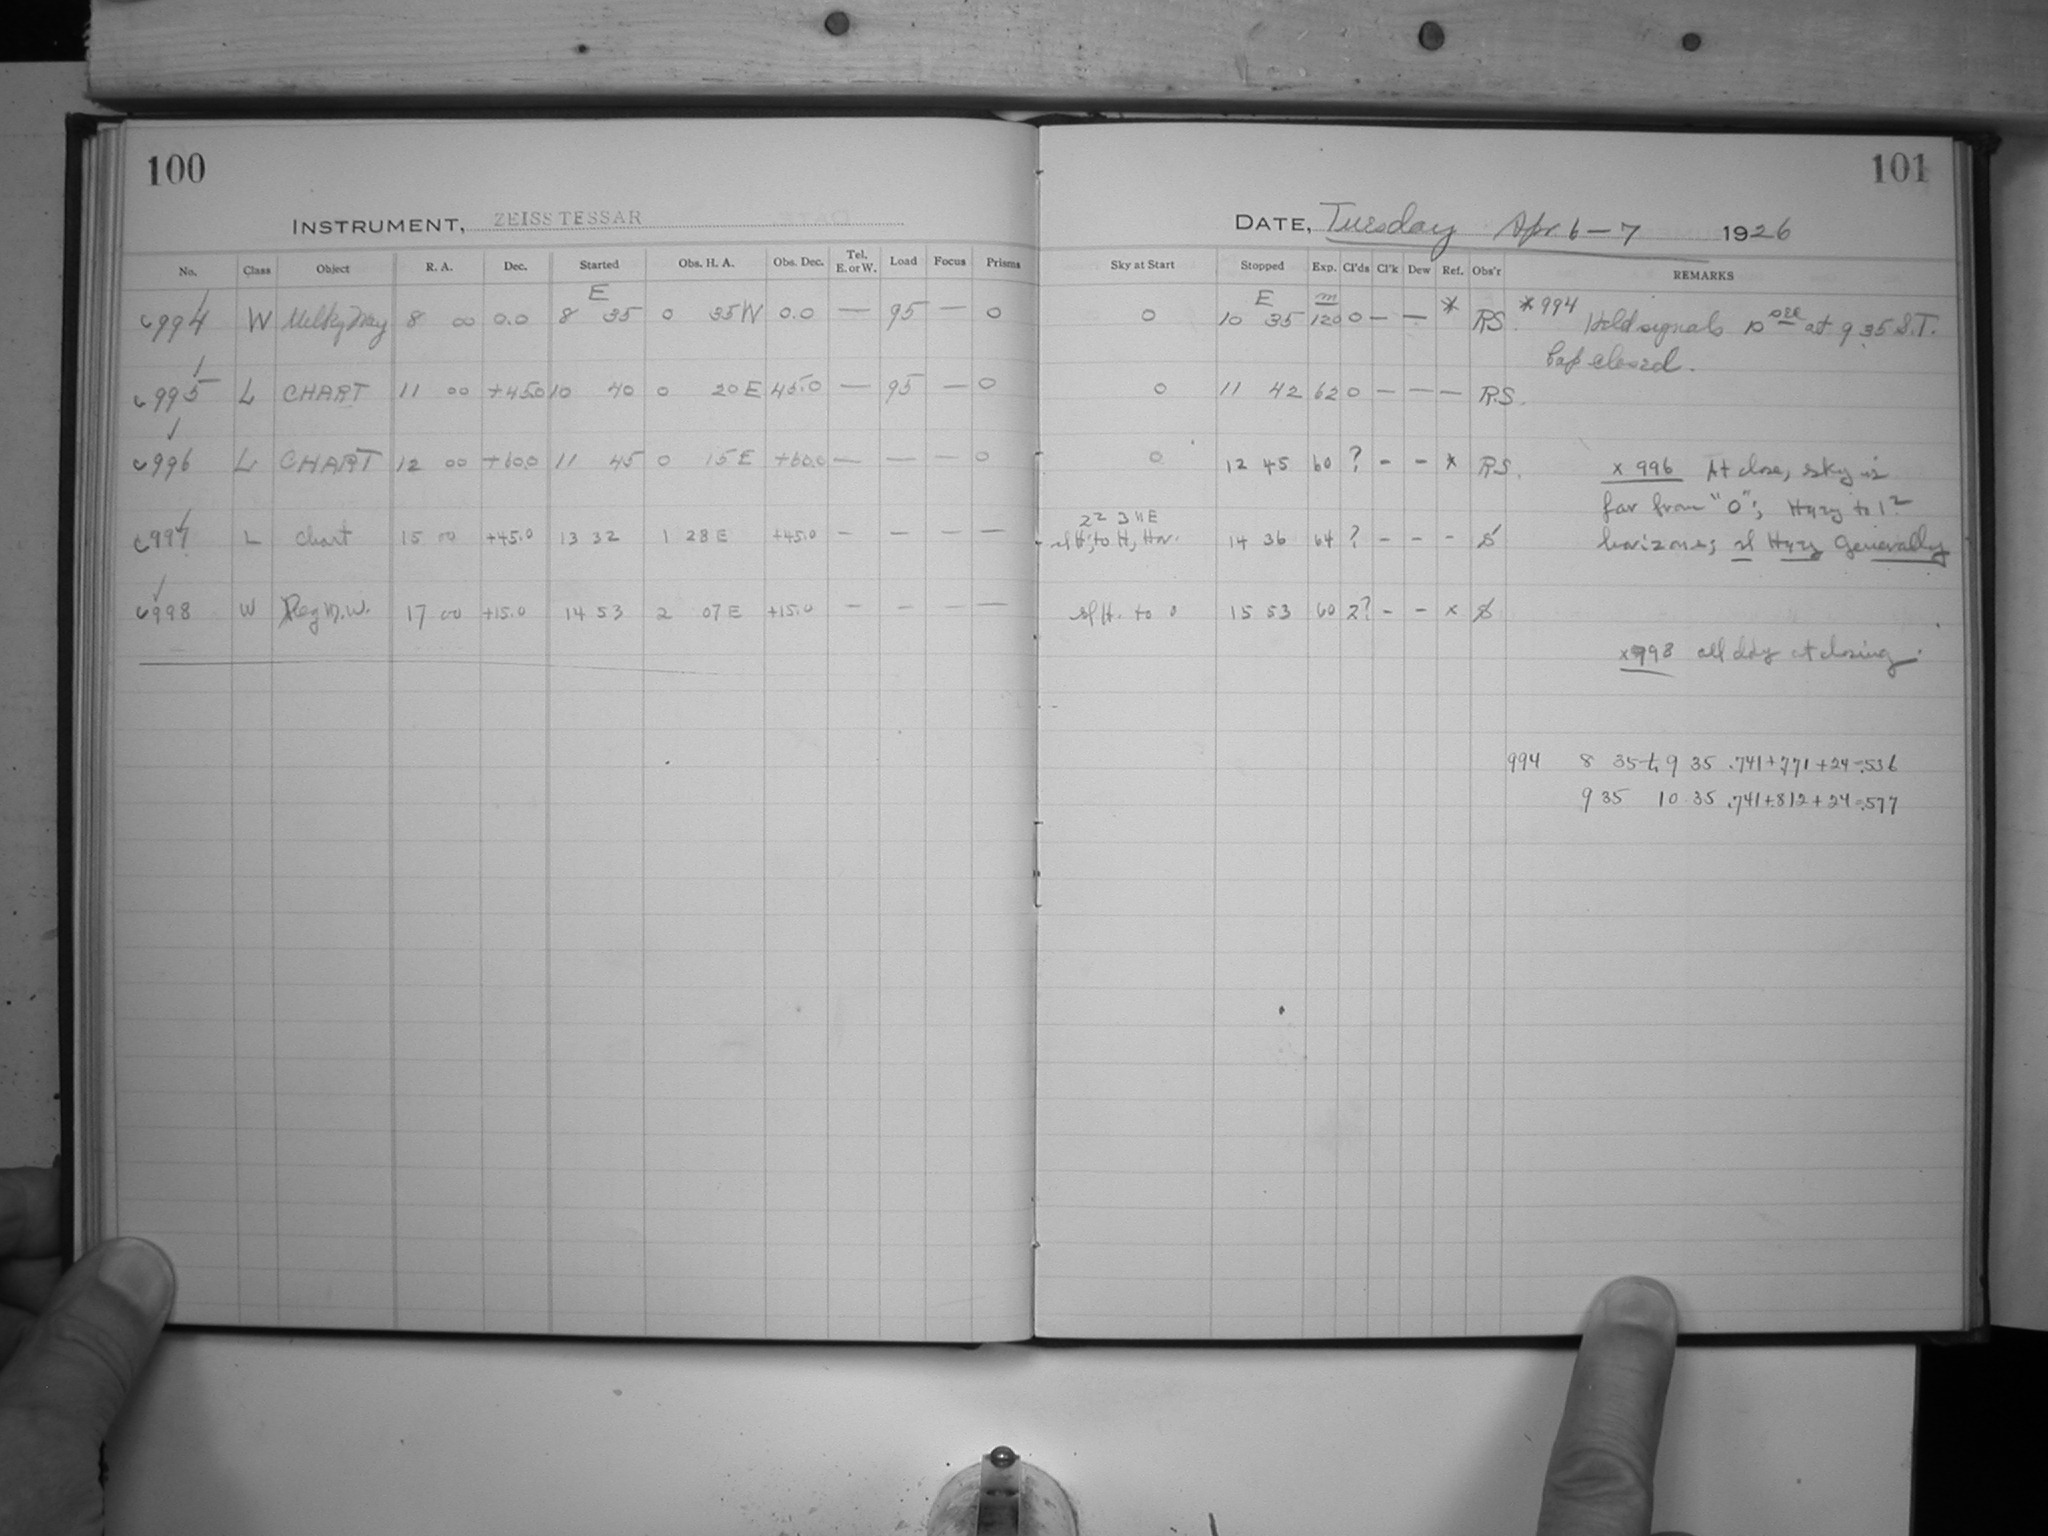 100
INSTRUMENT, ZEISS TESSAR
No. Class Object R. A. Dec. Started Obs. H. A. Obs. Dec. Tel. E. or W. Load Focus Prisms
E
c994 W Milky Way 8 00 0.0 8 35 0 35W 0.0 — 95 — 0
c995 L CHART 11 00 +45.0 10 40 0 20E 45.0 — 95 — 0
c996 L CHART 12 00 +60.0 11 45 0 15E +60.0 — — — 0
c997 L Chart 15 00 +45.0 13 32 1 28E +45.0 — — — —
c998 W Reg M.W. 17 00 +15.0 14 53 2 07E +15.0 — — — —
101
DATE, Tuesday Apr. 6-7 1926
Sky at Start Stopped Exp. Cl'ds Cl'k Dew Ref. Obs'r REMARKS
E m
0 10 35 120 0 — — * RS. *994 Held signals at 9 35 S.T.
Cap closed.
0 11 42 62 0 — — — R.S.
0 12 45 60 ? - - * RS. x 996 At close, sky is
far from "0"; Hazy to 1?
sl H; to H, Hor. 14 36 64 ? - - - horizons; sl Hazy Generally
sl H. to 0 15 53 60 2? - - x
x998 all day at closing.
994 8 35 to 9 35 .741+.771+24=.536
9 35 10 35 .741+812+24=.577